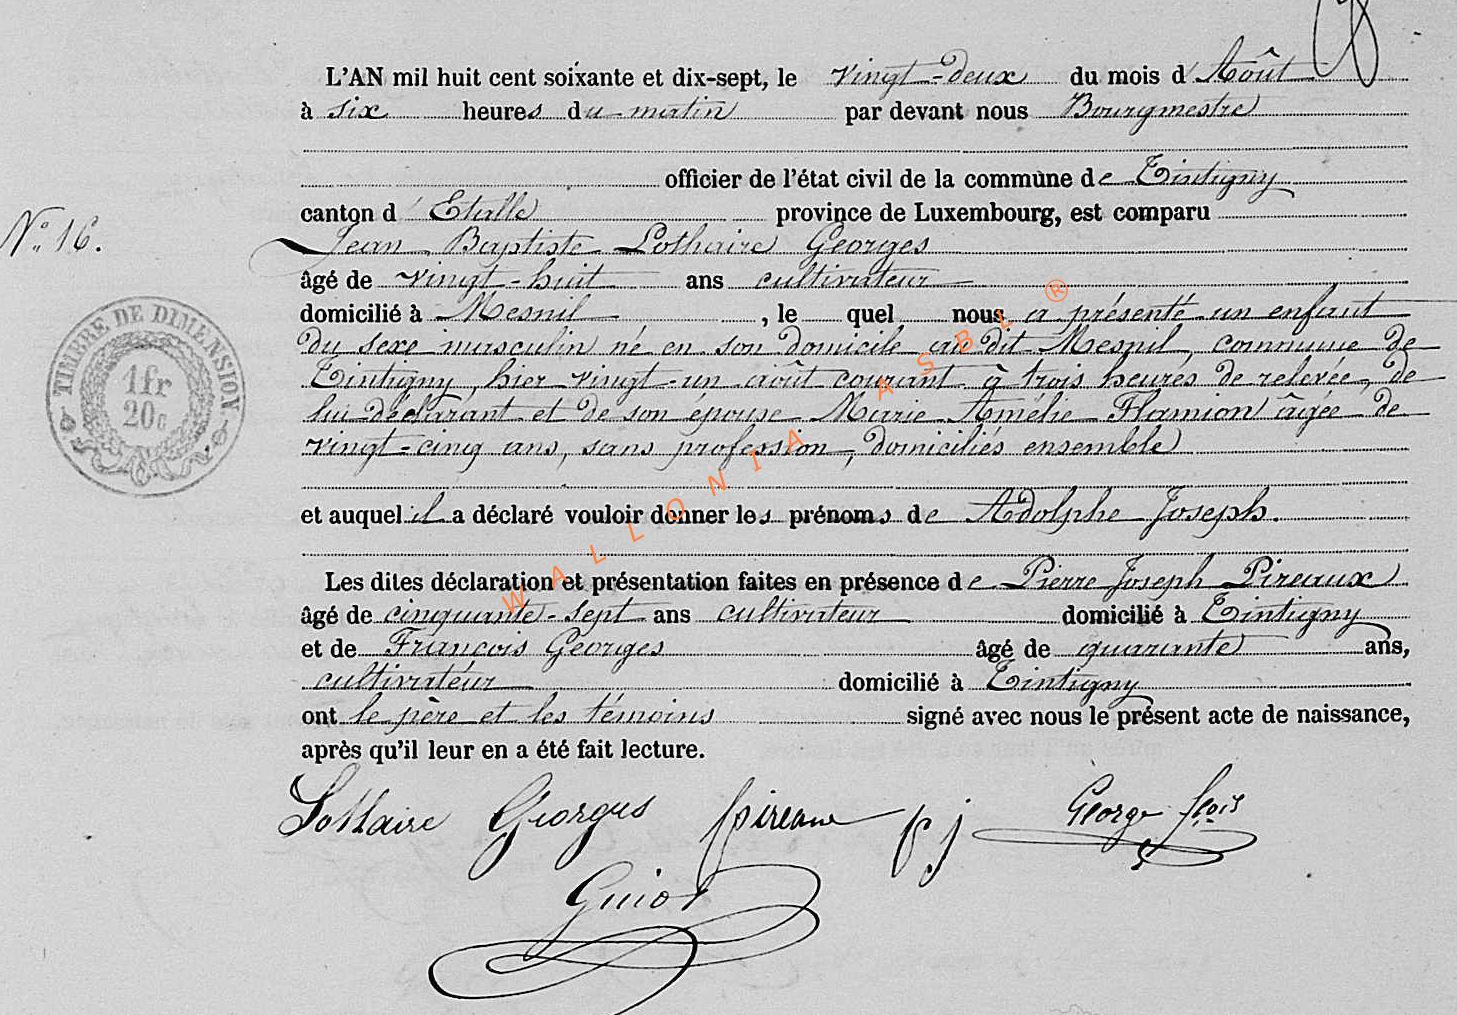 L'AN mil huit cent soixante et dix-sept, le vingt-deux du mois d'Août
à six heures du matin par devant nous Bourgmestre
officier de l'état civil de la commune de Tintigny
canton d'Etalle province de Luxembourg, est comparu
N° 16.
Jean Baptiste Lothaire Georges
âgé de vingt-huit ans cultivateur
domicilié à Mesnil , le quel nous a présenté un enfant
du sexe masculin né en son domicile au dit Mesnil, commune de
Tintigny, hier vingt-un août courant à trois heures de relevée, de
lui déclarant et de son épouse Marie Amélie Flamion âgée de
vingt-cinq ans, sans profession, domiciliés ensemble
et auquel il a déclaré vouloir donner les prénoms de Adolphe Joseph.
Les dites déclaration et présentation faites en présence de Pierre Joseph Pireaux
âgé de cinquante-sept ans cultivateur domicilié à Tintigny
et de François Georges âgé de quarante ans,
cultivateur domicilié à Tintigny
ont le père et les témoins signé avec nous le présent acte de naissance,
après qu'il leur en a été fait lecture.
Lothaire Georges Pireaux p j George fçois
Guiot
TIMBRE DE DIMENSION
1 fr
20 c
WALLONIA ASBL ®